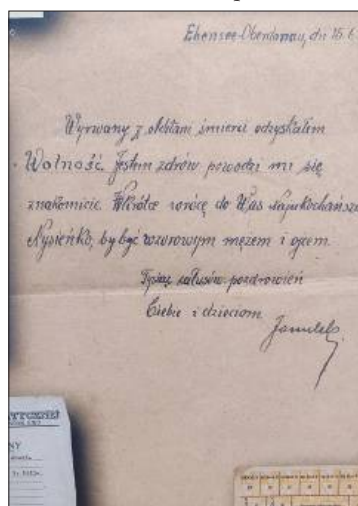 Ebensee-Oberdonau, dn 15.6.
Wyrwany z otchłani śmierci odzyskałem
Wolność. Jestem zdrów powodzi mi się
znakomicie. Wkrótce wrócę do Was Najukochańsza
Nysieńko, by być wzorowym mężem i ojcem.
Tysiąc całusów pozdrowień
Ciebie i dzieciom
TYCZNEJ
NY